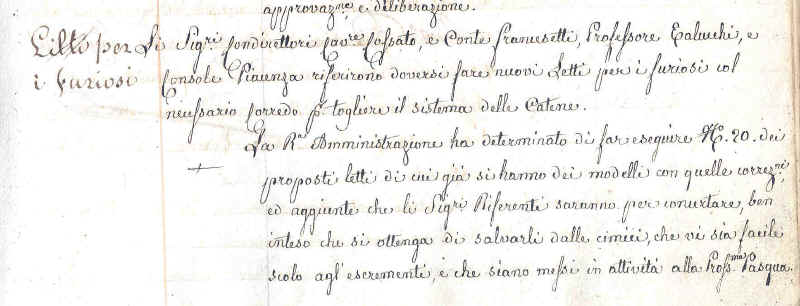 approvaz.ne e deliberazione.
Letti per Li Sigri. Condirettori Cav.re Cossato, e Conte Franesetti, Professore Ealuchi, e
i furiosi Console Piacenza riferirono doversi fare nuovi Letti per i furiosi col
necessario corredo p. togliere il sistema delle Catene.
La R.a Amministrazione ha determinato di far eseguire N.o 20. dei
proposti letti di cui già si hanno dei modelli con quelle correz.ni
ed aggiunte che li Sigri. Riferenti saranno per concertare, ben
inteso che si ottenga di salvarli dalle cimici, che vi sia facile
scolo agl'escrementi, e che siano messi in attività alla Pross.ma Pasqua.